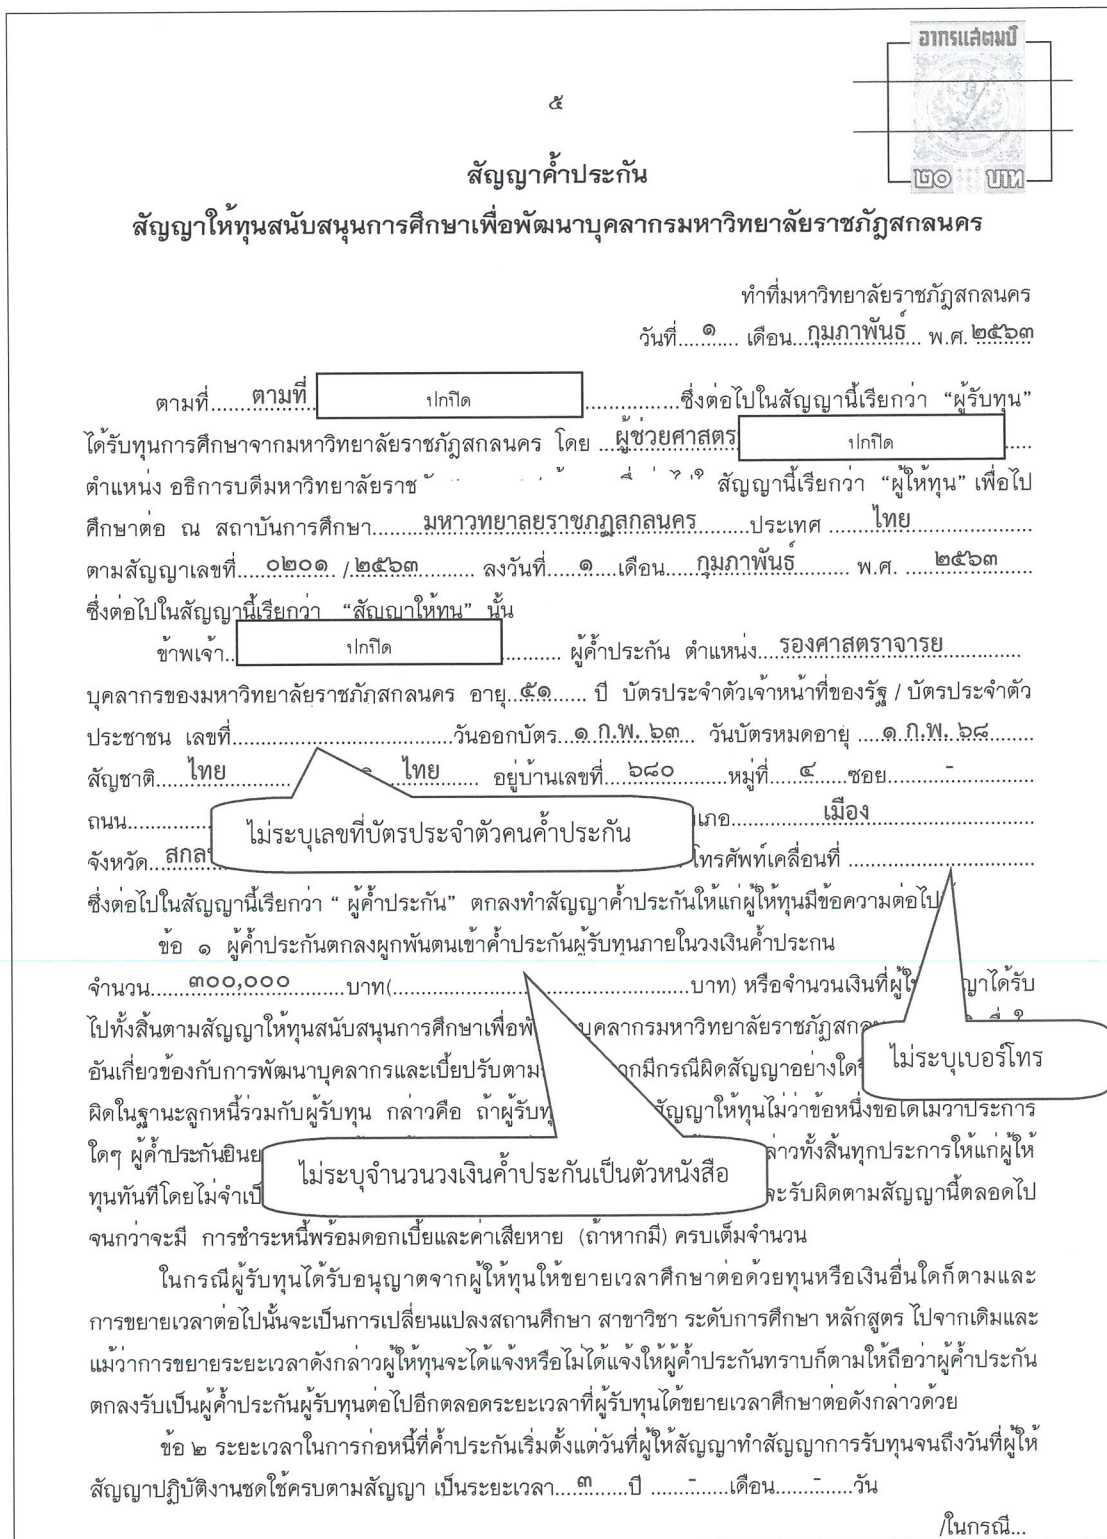 อากรแสตมป์
๒๐ บาท
๕
สัญญาค้ำประกัน
สัญญาให้ทุนสนับสนุนการศึกษาเพื่อพัฒนาบุคลากรมหาวิทยาลัยราชภัฏสกลนคร
ทำที่มหาวิทยาลัยราชภัฏสกลนคร
วันที่.....๑........ เดือน...กุมภาพันธ์... พ.ศ. ๒๕๖๓
ตามที่.......ตามที่ ปกปิด ................ซึ่งต่อไปในสัญญานี้เรียกว่า “ผู้รับทุน”
ได้รับทุนการศึกษาจากมหาวิทยาลัยราชภัฏสกลนคร โดย ...ผู้ช่วยศาสตร ปกปิด .....
ตำแหน่ง อธิการบดีมหาวิทยาลัยราช สัญญานี้เรียกว่า “ผู้ให้ทุน” เพื่อไป
ศึกษาต่อ ณ สถาบันการศึกษา.........มหาวทยาลยราชภฏสกลนคร.........ประเทศ .......ไทย....................
ตามสัญญาเลขที่.....๐๒๐๑ ../๒๕๖๓............ ลงวันที่......๑.....เดือน.....กุมภาพันธ์......... พ.ศ. ....๒๕๖๓......
ซึ่งต่อไปในสัญญานี้เรียกว่า “สัญญาให้ทุน” นั้น
ข้าพเจ้า.. ปกปิด .......... ผู้ค้ำประกัน ตำแหน่ง....รองศาสตราจารย.............
บุคลากรของมหาวิทยาลัยราชภัฏสกลนคร อายุ..๕๑....... ปี บัตรประจำตัวเจ้าหน้าที่ของรัฐ / บัตรประจำตัว
ประชาชน เลขที่....................................วันออกบัตร...๑ ก.พ. ๖๓... วันบัตรหมดอายุ ....๑ ก.พ. ๖๘.......
สัญชาติ.....ไทย ไทย....... อยู่บ้านเลขที่ ...๖๘๐.........หมู่ที่ ....๔.....ซอย.........-.............
ถนน......... เภอ..............เมือง.......................
ไม่ระบุเลขที่บัตรประจำตัวคนค้ำประกัน
จังหวัด...สกล โทรศัพท์เคลื่อนที่ ...............................
ซึ่งต่อไปในสัญญานี้เรียกว่า “ ผู้ค้ำประกัน” ตกลงทำสัญญาค้ำประกันให้แก่ผู้ให้ทุนมีข้อความต่อไป
ข้อ ๑ ผู้ค้ำประกันตกลงผูกพันตนเข้าค้ำประกันผู้รับทุนภายในวงเงินค้ำประกน
จำนวน......๓๐๐,๐๐๐.........บาท(................................................บาท) หรือจำนวนเงินที่ผู้ให้ ญาได้รับ
ไปทั้งสิ้นตามสัญญาให้ทุนสนับสนุนการศึกษาเพื่อพั บุคลากรมหาวิทยาลัยราชภัฏสกล
อันเกี่ยวข้องกับการพัฒนาบุคลากรและเบี้ยปรับตาม ากมีกรณีผิดสัญญาอย่างใด
ไม่ระบุเบอร์โทร
ผิดในฐานะลูกหนี้ร่วมกับผู้รับทุน กล่าวคือ ถ้าผู้รับทุ สัญญาให้ทุนไม่ว่าข้อหนึ่งขอใดไมวาประการ
ใดๆ ผู้ค้ำประกันยินย ล่าวทั้งสิ้นทุกประการให้แก่ผู้ให้
ไม่ระบุจำนวนวงเงินค้ำประกันเป็นตัวหนังสือ
ทุนทันทีโดยไม่จำเป็ จะรับผิดตามสัญญานี้ตลอดไป
จนกว่าจะมี การชำระหนี้พร้อมดอกเบี้ยและค่าเสียหาย (ถ้าหากมี) ครบเต็มจำนวน
ในกรณีผู้รับทุนได้รับอนุญาตจากผู้ให้ทุนให้ขยายเวลาศึกษาต่อด้วยทุนหรือเงินอื่นใดก็ตามและ
การขยายเวลาต่อไปนั้นจะเป็นการเปลี่ยนแปลงสถานศึกษา สาขาวิชา ระดับการศึกษา หลักสูตร ไปจากเดิมและ
แม้ว่าการขยายระยะเวลาดังกล่าวผู้ให้ทุนจะได้แจ้งหรือไม่ได้แจ้งให้ผู้ค้ำประกันทราบก็ตามให้ถือว่าผู้ค้ำประกัน
ตกลงรับเป็นผู้ค้ำประกันผู้รับทุนต่อไปอีกตลอดระยะเวลาที่ผู้รับทุนได้ขยายเวลาศึกษาต่อดังกล่าวด้วย
ข้อ ๒ ระยะเวลาในการก่อหนี้ที่ค้ำประกันเริ่มตั้งแต่วันที่ผู้ให้สัญญาทำสัญญาการรับทุนจนถึงวันที่ผู้ให้
สัญญาปฏิบัติงานชดใช้ครบตามสัญญา เป็นระยะเวลา....๓......ปี ......-......เดือน......-......วัน
/ในกรณี...